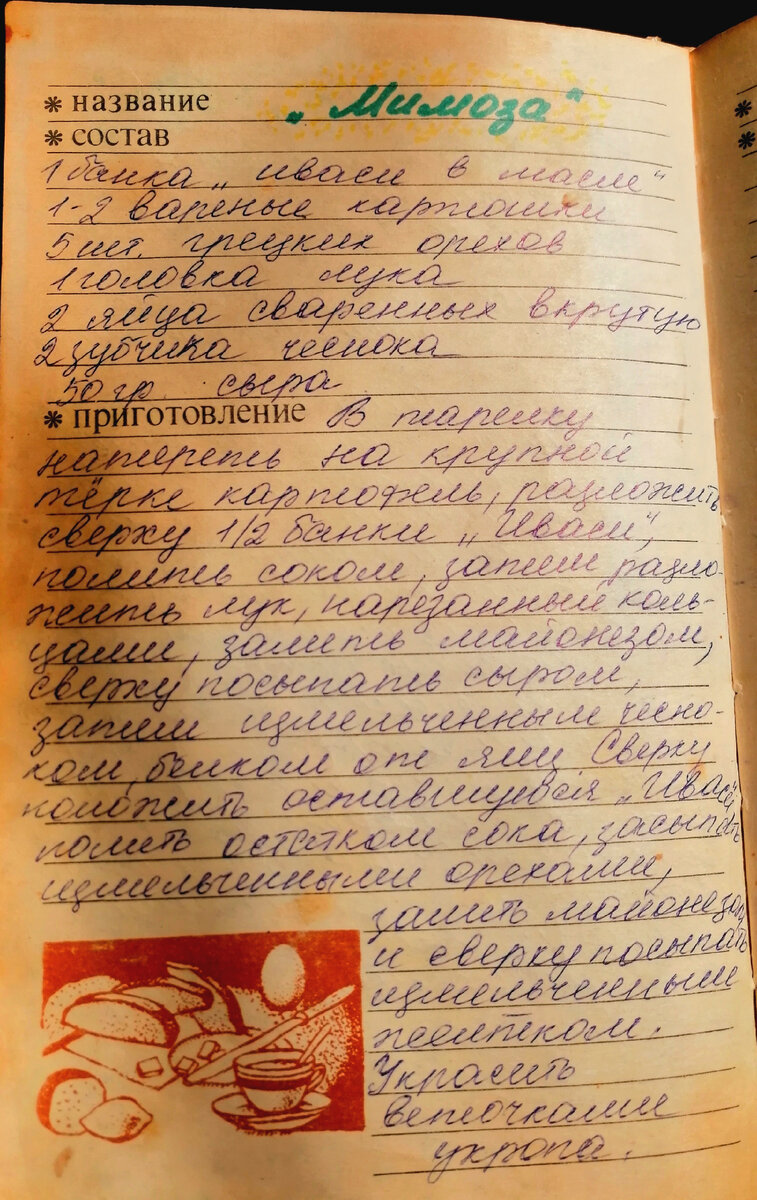 * название „Мимоза“
* состав
1 банка „иваси в масле“
1-2 вареные картошки
5 шт. грецких орехов
1 головка лука
2 яйца сваренных вкрутую
2 зубчика чеснока
50 гр. сыра
* приготовление В тарелку
натереть на крупной
тёрке картофель, разложить
сверху 1/2 банки „Иваси“,
полить соком, затем разло-
жить лук, нарезанный коль-
цами, залить майонезом,
сверху посыпать сыром,
затем измельченным чесно-
ком, белком от яиц Сверху
положить оставшуюся „Иваси“
полить остатком сока, засыпать
измельченными орехами,
залить майонезом
и сверху посыпать
измельченным
желтком.
Украсить
веточками
укропа.